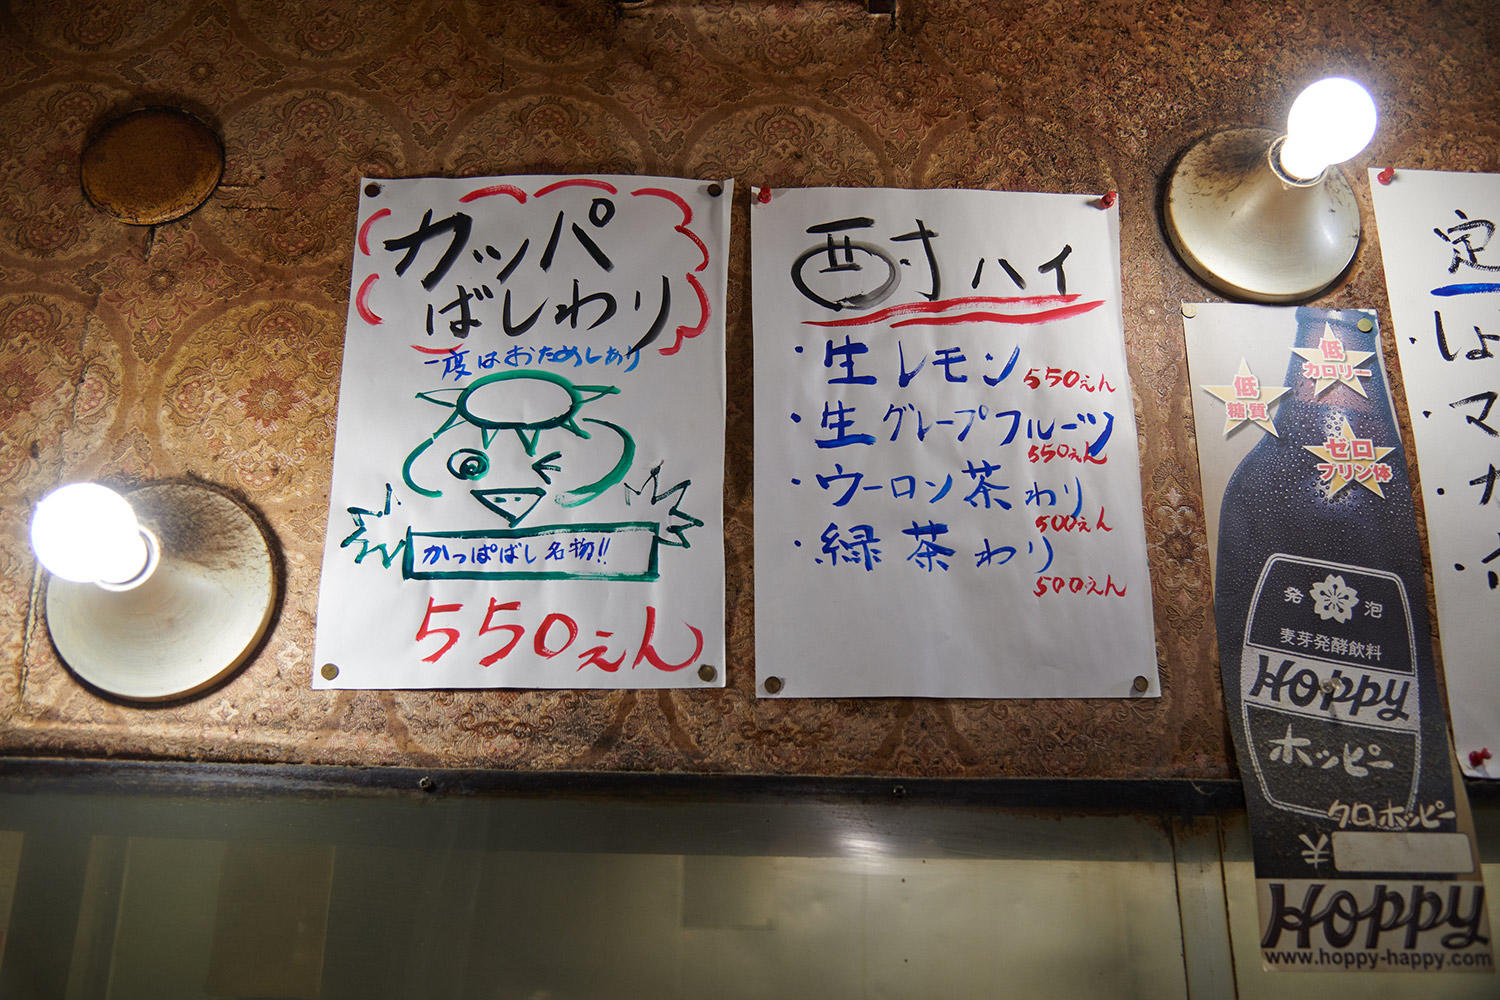 カッパ
ばしわり
一度はおためしあり
かっぱばし名物!!
550えん
酎ハイ
・生レモン 550えん
・生グレープフルーツ
550えん
・ウーロン茶わり
500えん
・緑茶わり
500えん
低
カロリー
低
糖質
ゼロ
プリン体
発泡
麦芽発酵飲料
Hoppy
ホッピー
クロホッピー
¥
Hoppy
www.hoppy-happy.com
定
・しょ
・マ